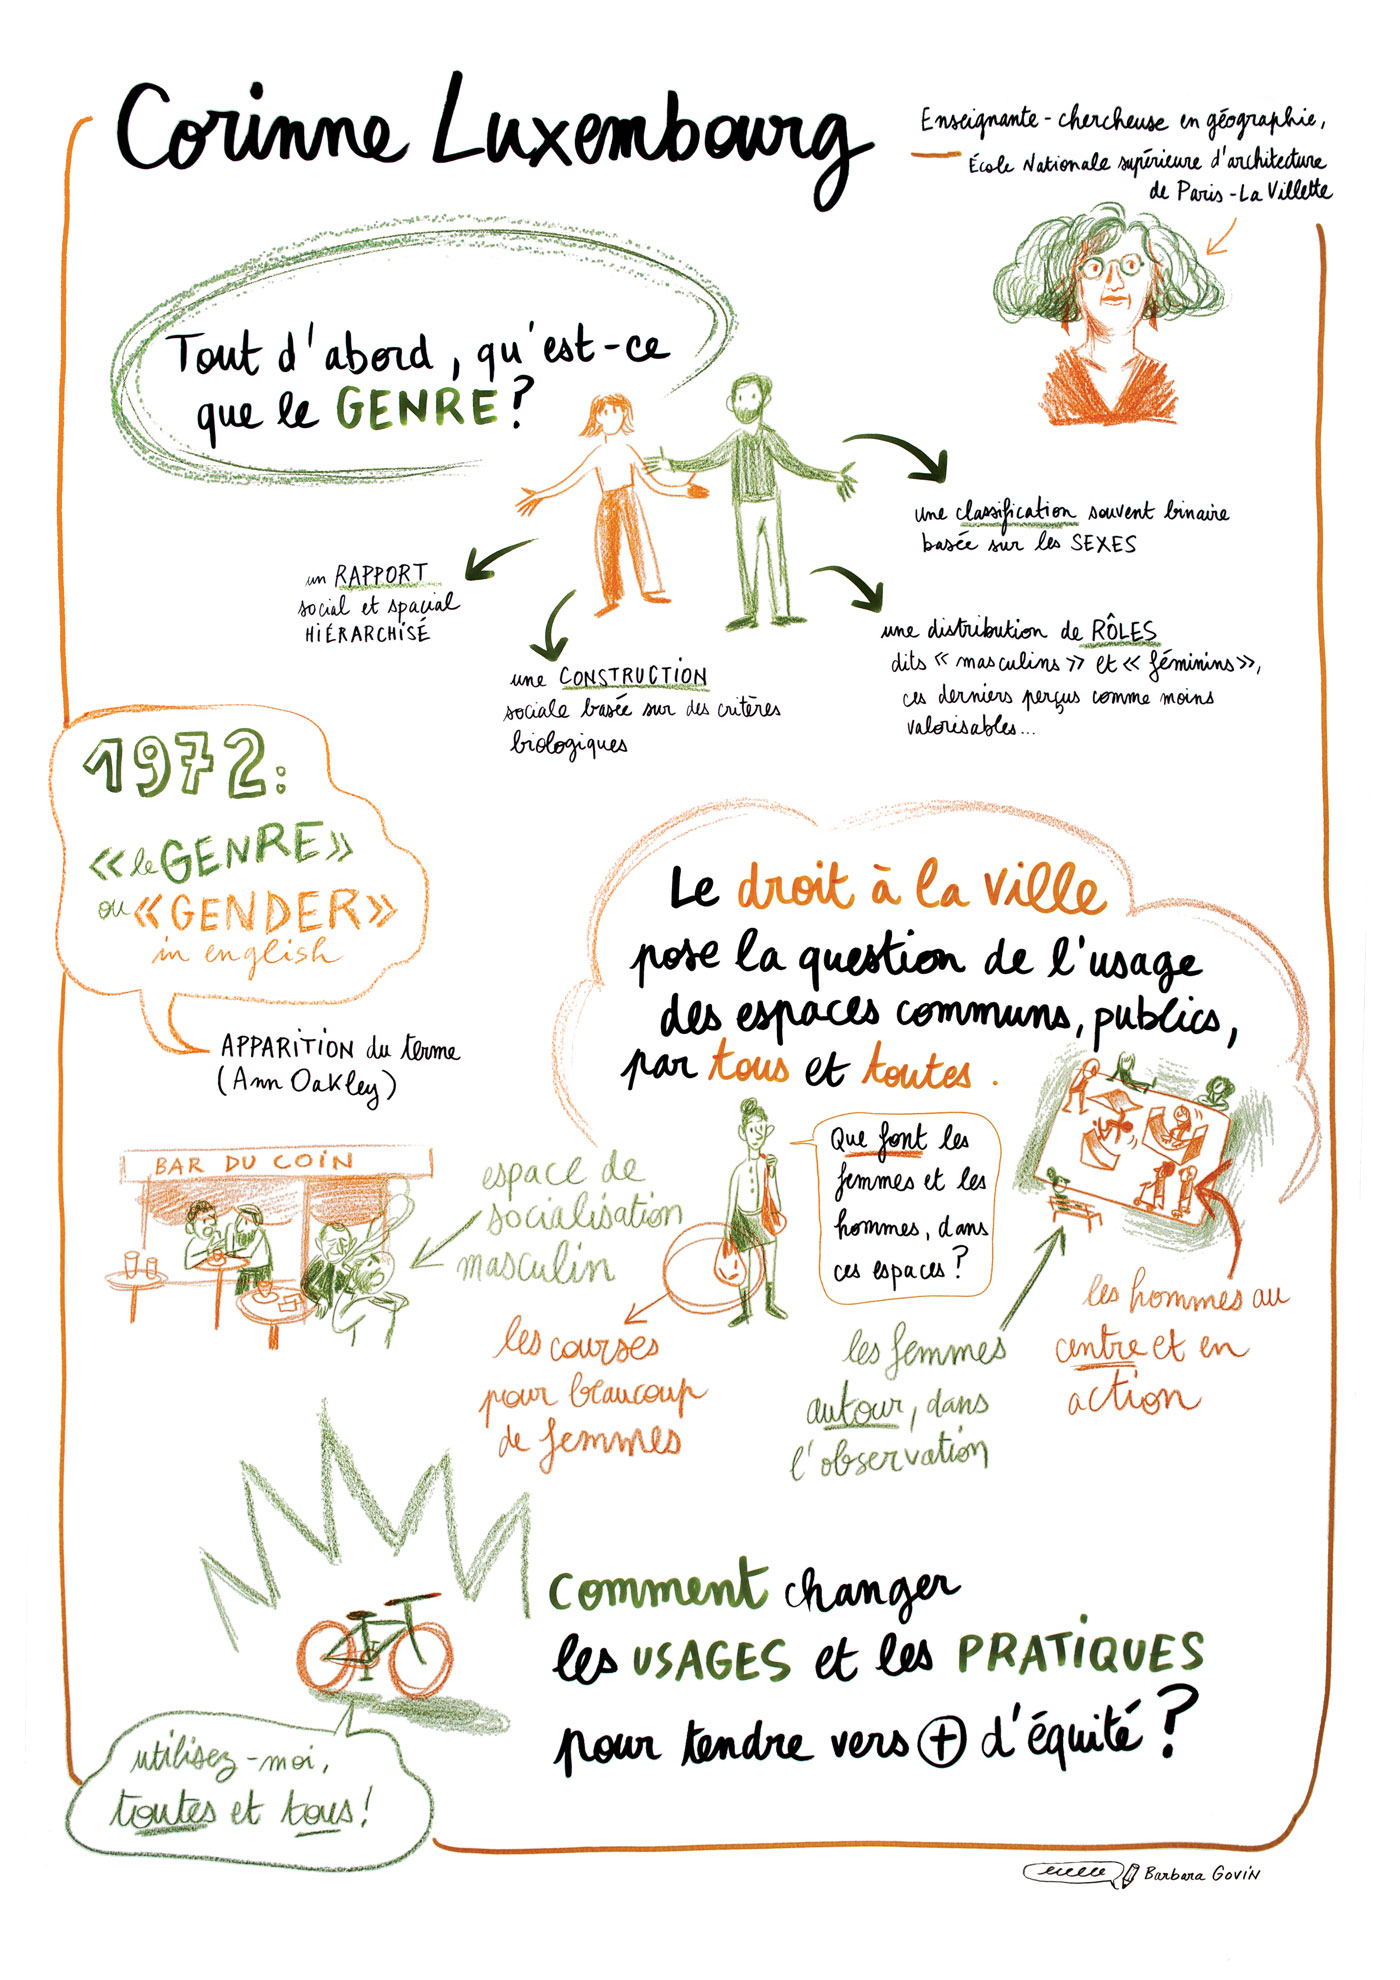 Corinne Luxembourg
Enseignante-chercheuse en géographie,
École Nationale supérieure d'architecture
de Paris-La Villette
Tout d'abord, qu'est-ce
que le GENRE?
une classification souvent binaire
basée sur les SEXES
un RAPPORT
social et spacial
HIÉRARCHISÉ
une CONSTRUCTION
sociale basée sur des critères
biologiques
une distribution de RÔLES
dits « masculins » et « féminins »,
ces derniers perçus comme moins
valorisables...
1972:
«le GENRE»
ou «GENDER»
in english
APPARITION du terme
(Ann Oakley)
Le droit à la ville
pose la question de l'usage
des espaces communs, publics,
par tous et toutes.
BAR DU COIN
espace de
socialisation
masculin
Que font les
femmes et les
hommes, dans
ces espaces?
les courses
pour beaucoup
de femmes
les femmes
autour, dans
l'observation
les hommes au
centre et en
action
Comment changer
les USAGES et les PRATIQUES
pour tendre vers + d'équité?
utilisez-moi,
toutes et tous!
Barbara GOVIN